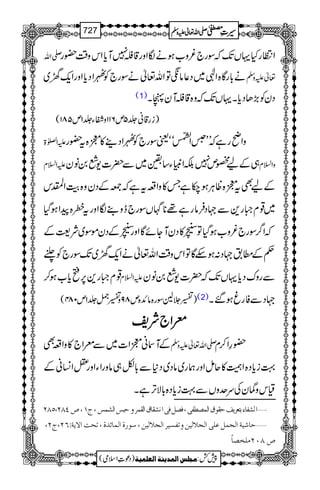 سیرتِ مصطفی صلی اللہ تعالیٰ علیہ وسلم 727
انتظار کیا یہاں تک کہ سورج غروب ہونے لگا اور قافلہ نہیں آیا اس وقت حضور صلی اللہ
تعالیٰ علیہ وسلم نے بارگاہ الٰہی میں دعا مانگی تو اللہ تعالیٰ نے سورج کو ٹھہرا دیا اور ایک گھڑی
دن کو بڑھا دیا۔ یہاں تک کہ وہ قافلہ آن پہنچا۔(1)
(زرقانی جلد۵ ص۱۱۶ و شفاء جلد۱ ص۱۸۵)
واضح رہے کہ ’’حبس الشمس‘‘ یعنی سورج کو ٹھہرا دینے کا معجزہ یہ حضور علیہ الصلوۃ
والسلام ہی کے لیے مخصوص نہیں بلکہ انبیاء سابقین میں سے حضرت یوشع بن نون علیہ السلام
کے لیے بھی یہ معجزہ ظاہر ہو چکا ہے جس کا واقعہ یہ ہے کہ جمعہ کے دن وہ بیت المقدس
میں قوم جبارین سے جہاد فرما رہے تھے ناگہاں سورج ڈوبنے لگا اور یہ خطرہ پیدا ہو گیا
کہ اگر سورج غروب ہو گیا تو سنیچر کا دن آ جائے گا اور سنیچر کے دن موسوی شریعت کے
حکم کے مطابق جہاد نہ ہو سکے گا تو اس وقت اللہ تعالیٰ نے ایک گھڑی تک سورج کو چلنے
سے روک دیا یہاں تک کہ حضرت یوشع بن نون علیہ السلام قوم جبارین پر فتح یاب ہو کر
جہاد سے فارغ ہو گئے۔(2) (تفسیر جلالین سورۂ مائدہ ص۹۸ و تفسیر جمل جلد۱ ص۴۸۰)
معراج شریف
حضور اکرم صلی اللہ تعالیٰ علیہ وسلم کے آسمانی معجزات میں سے معراج کا واقعہ بھی
بہت زیادہ اہمیت کا حامل اور ہماری مادی دنیا سے بالکل ہی ماوراء اور عقل انسانی کے
قیاس و گمان کی سرحدوں سے بہت زیادہ بالاتر ہے۔
الشفاء بتعریف حقوق المصطفی ، فصل فی انشقاق القمرو حبس الشمس ، ج۱ ، ص ۲۸۴ ، ۲۸۵
حاشیة الجمل علی الجلالین وتفسیر الجلالین ، سورة المائدة ، تحت الایة:۲۶، ج۲،
ص ۲۰۸ ملخصاً
پیش کش: مجلس المدینة العلمیة (دعوتِ اسلامی)